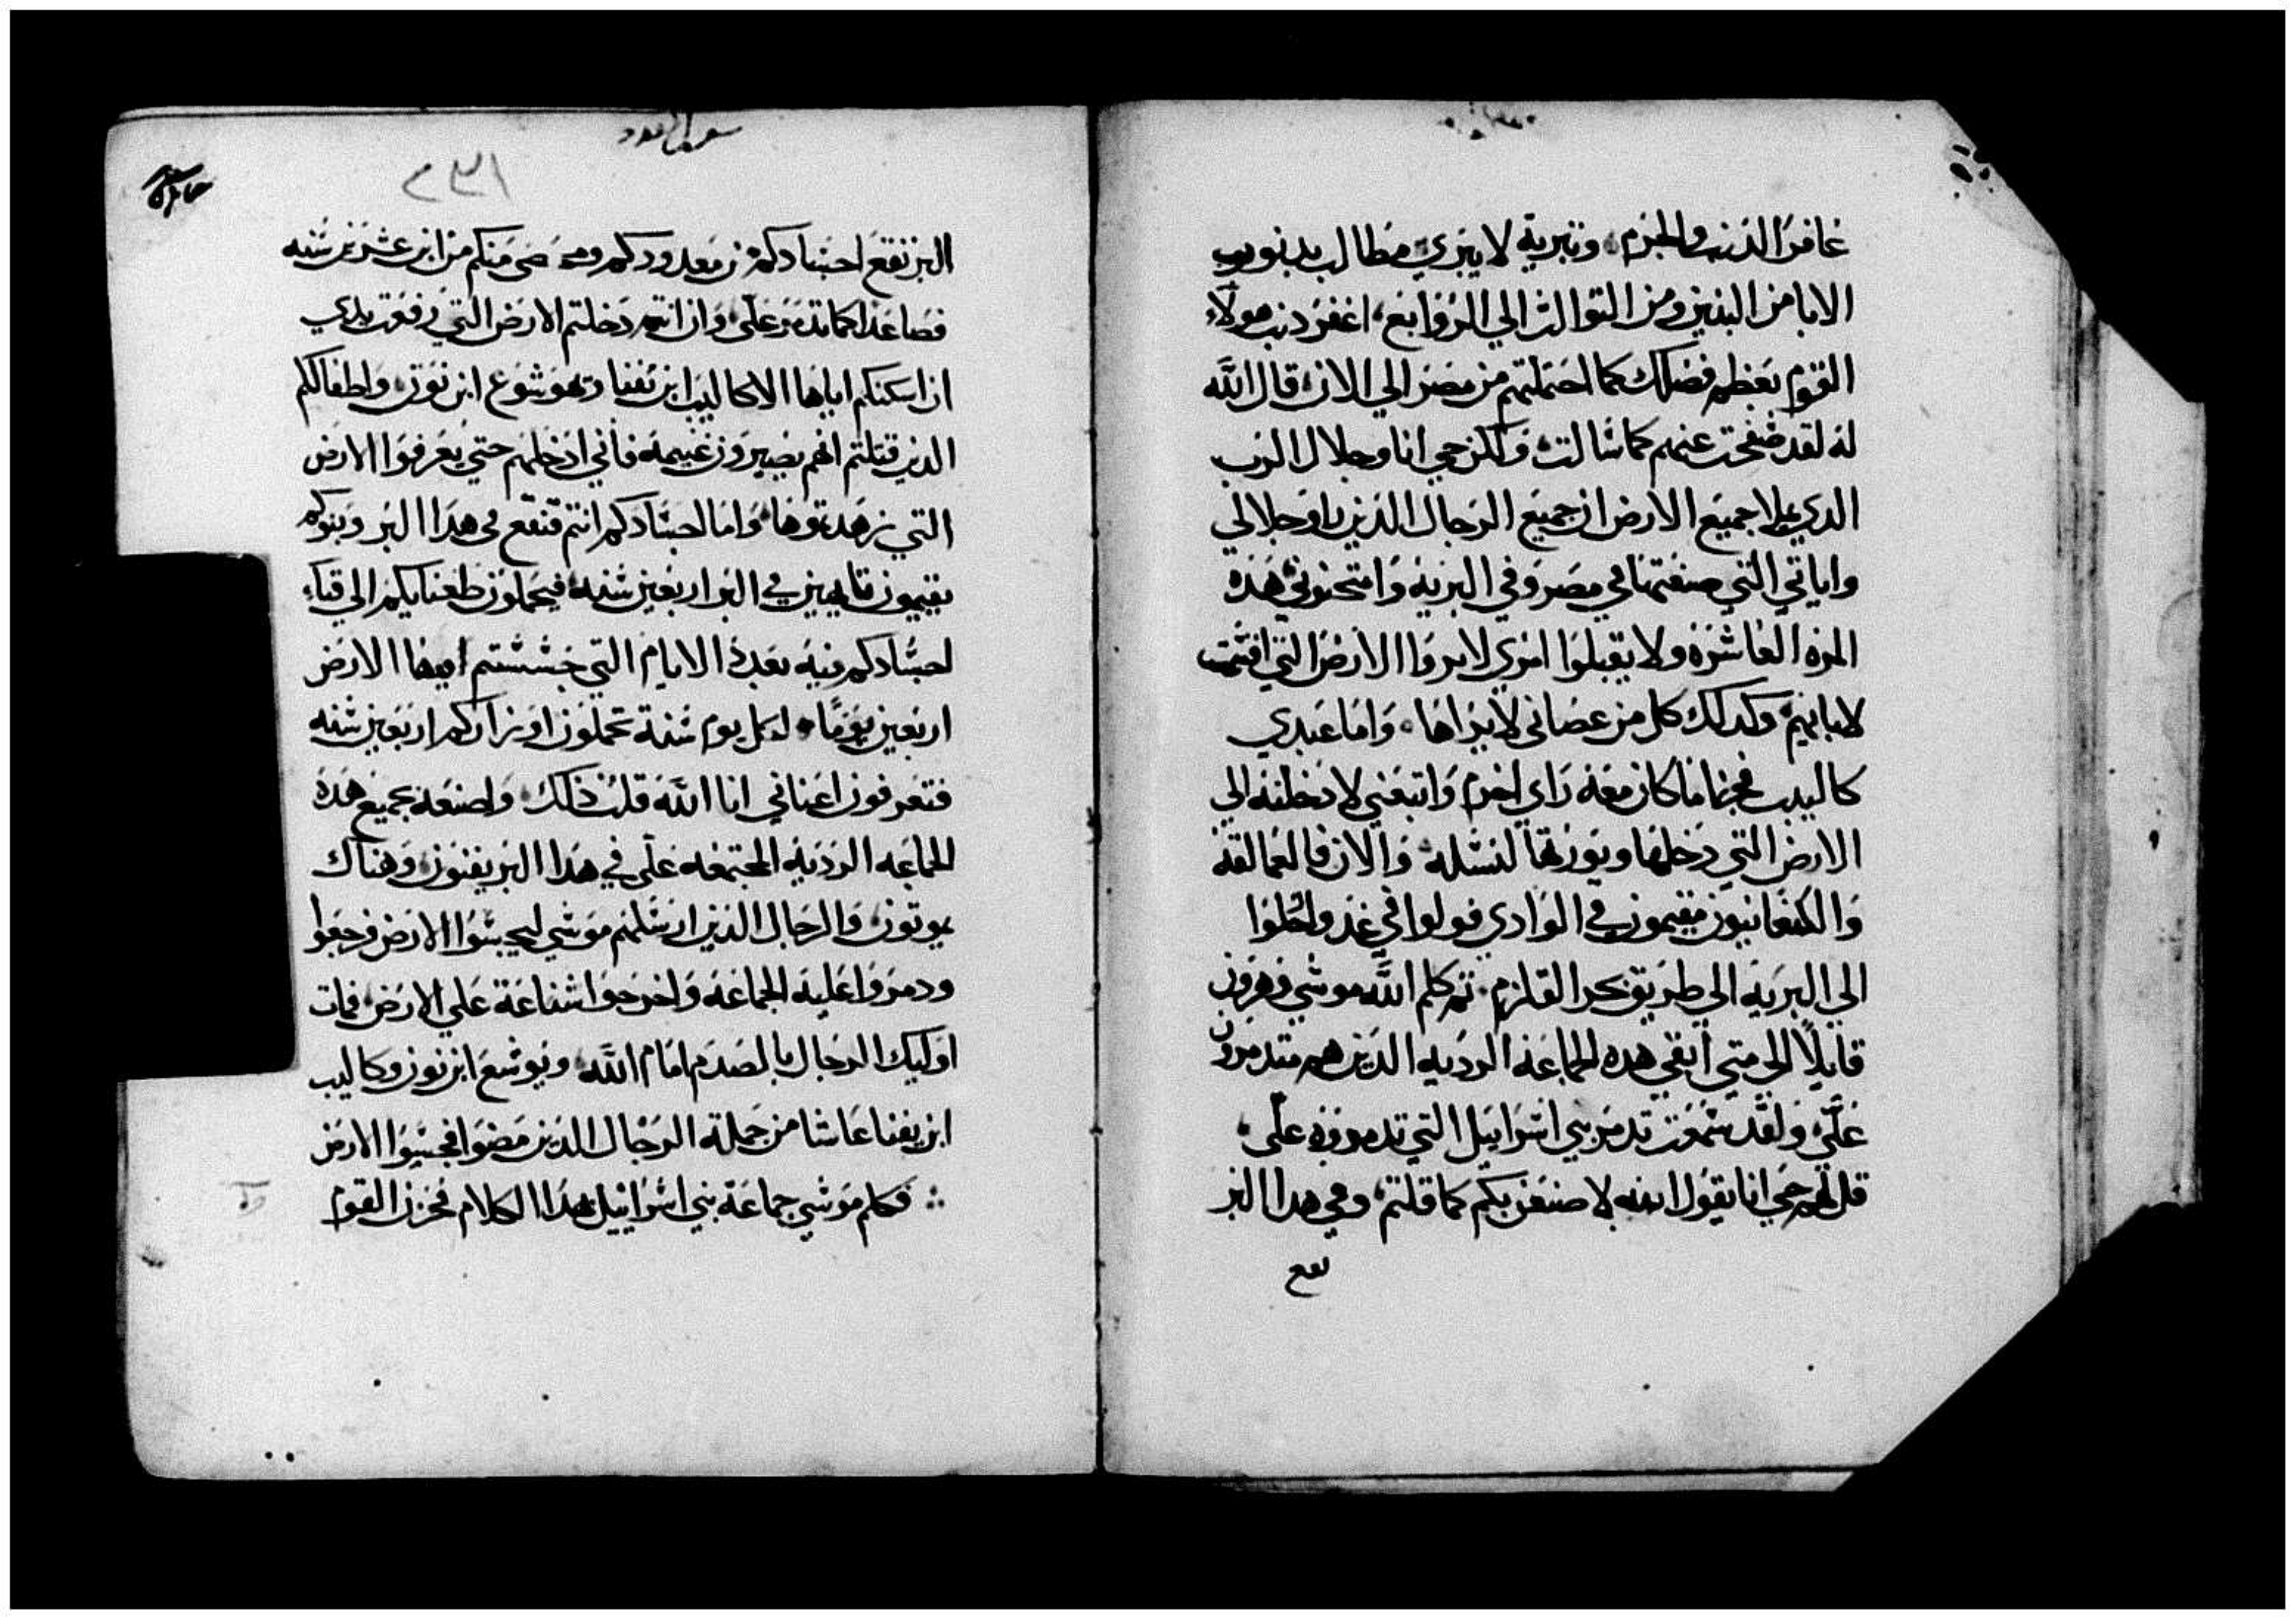 غافر الذنب والجرم وتبرية لا يبري مطالب بدنوب
الابا من البنين ومن التوالت الي الروابع، اغفر دنب هولاء
القوم بعظم فضلك كما احتملتهم من مصر الي الان، قال الله
له لقد صفحت عنهم كما سالت، ولكن حي انا وجلال الرب
الدي يملا جميع الارض ان جميع الرجال الذين راو جلالي
واياتي التي صنعتها في مصر وفي البريه وامتحنوني هذه
المره العاشره ولا يقبلوا امري لا يروا الارض التي اقسمت
لابايهم، وكدلك كل من عصاني لا يراها، واما عبدي
كاليب كان معه راي اخر، واتبعني لادخلنه الي
الارض التي دخلها ويورتها لنسله، والان فالعمالقه
والكنعانيون مقيمون في الوادي فولوا في غد وارحلوا
الي البريه الي طريق بحر القلزم، تم كلم الله موسي وهرون
قايلا الي متي ابقي هده الجماعه الرديه الدين هم متدمرون
علي، ولقد سمعت تدمر بني اسراييل التي تدمروه علي،
قل لهم حي انا يقول الله لاصنعن بكم كما قلتم، وفي هدا البر
تقع
سفر العدد
٢٣١
البر تقع اجسادكم من معدودكم ومن مَنكم من ابن عشرين سنه
فصاعدا كما تدمرو علي، وان انتم دخلتم الارض التي رفعت يدي
ان اسكنكم اياها الا كاليب ابن يفنا وهوشوع ابن نون، واطفالكم
الدين قتلتم انهم يصيرون غنيمه فاني ادخلهم حتي يعرفوا الارض
التي زهدتوها، واما اجسادكم انتم فتقع في هدا البر وبنوكم
يقيمون تايهين في البر اربعين سنه، فيحملون طغنايكم الي فناء
اجسادكم فيه بعدة الايام التي جسستم فيها الارض
اربعين يوما، لكل يوم سنة تحملون اوزاركم اربعين سنه
فتعرفون انا الله قلت ذلك، ولاصنعه بجميع هده
الجماعه الرديه المجتمعه علي في هدا البر يفنون، وهناك
يموتون، والرجال الدين ارسلهم موسي ليجسوا الارض فرجعوا
ودمروا عليه الجماعه واخرجوا شناعة علي الارض، فمات
اوليك الرجال بالصدم امام الله، ويوشع ابن نون وكاليب
ابن يفنا عاشا من جملة الرجال الدين مضوا فجسوا الارض
فكلم موسي جماعة بني اسراييل بهدا الكلام فحزن القوم